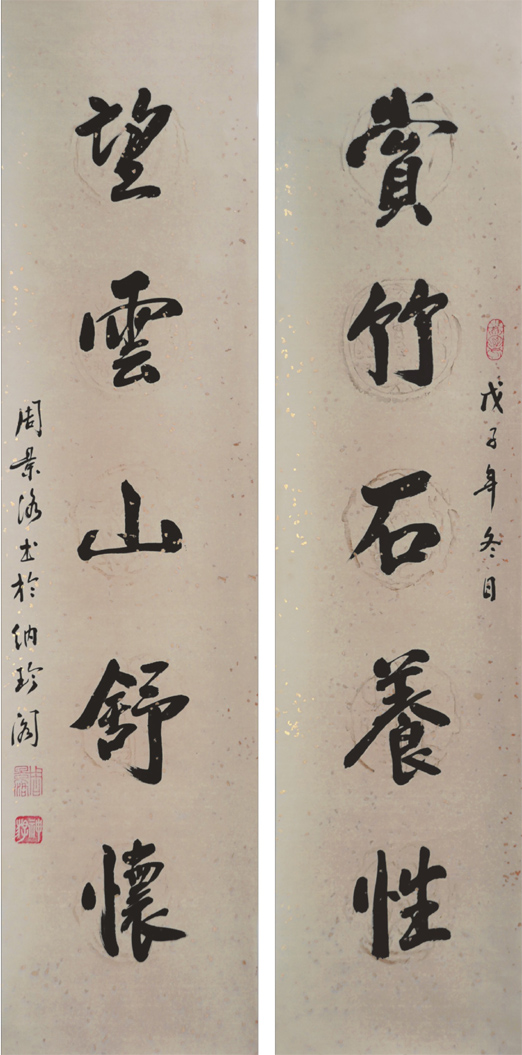 賞竹石養性
戊子年冬日
望雲山舒懷
周景洛书於納珍阁